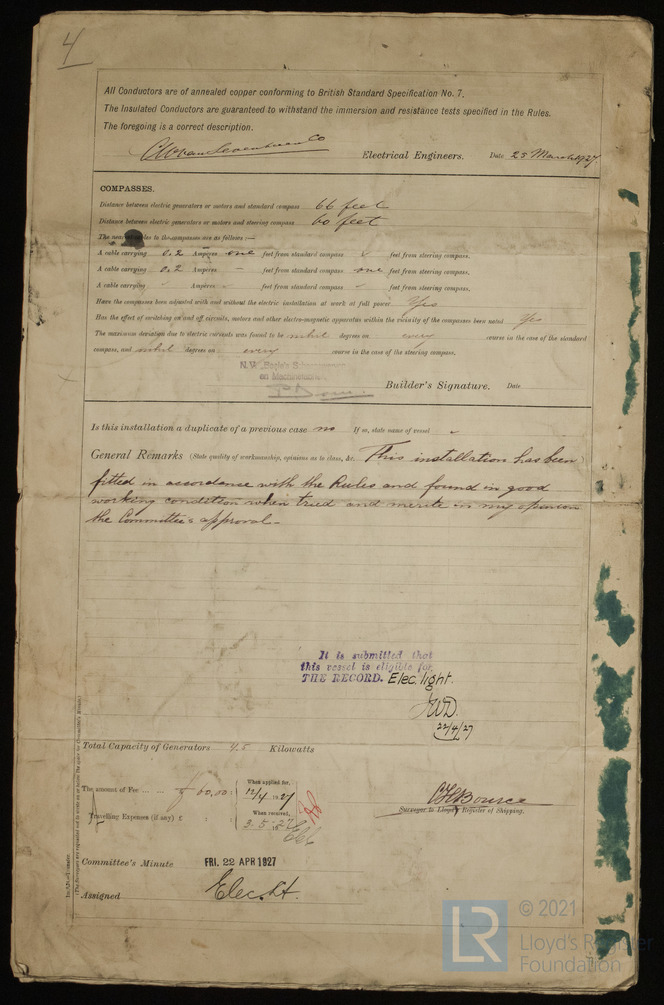 4
All Conductors are of annealed copper conforming to British Standard Specification No. 7.
The Insulated Conductors are guaranteed to withstand the immersion and resistance tests specified in the Rules.
The foregoing is a correct description.
Electrical Engineers. Date 25 March 1927
COMPASSES.
Distance between electric generators or motors and standard compass 66 feet
Distance between electric generators or motors and steering compass 60 feet
The nearest cables to the compasses are as follows :—
A cable carrying 0.2 Ampères one feet from standard compass feet from steering compass.
A cable carrying 0.2 Ampères - feet from standard compass one feet from steering compass.
A cable carrying - Ampères - feet from standard compass - feet from steering compass.
Have the compasses been adjusted with and without the electric installation at work at full power Yes
Has the effect of switching on and off circuits, motors and other electro-magnetic apparatus within the vicinity of the compasses been noted Yes
The maximum deviation due to electric currents was found to be degrees on every course in the case of the standard
compass, and degrees on every course in the case of the steering compass.
Builder's Signature. Date
Is this installation a duplicate of a previous case no If so, state name of vessel
General Remarks (State quality of workmanship, opinions as to class, &c. This installation has been
fitted in accordance with the Rules and found in good
working condition when tried and merits in my opinion
the Committee's approval.—
It is submitted that
this vessel is eligible for
THE RECORD. Elec. light.
JWD.
22/4/27
Total Capacity of Generators 4.5 Kilowatts
The amount of Fee 60.00 : When applied for, 12/4 1927
Travelling Expenses (if any) £ : : When received, 3.5.1927
Surveyor to Lloyd's Register of Shipping.
Committee's Minute FRI. 22 APR 1927
Assigned Elec. Lt.
© 2021
LR
Lloyd's Register
Foundation